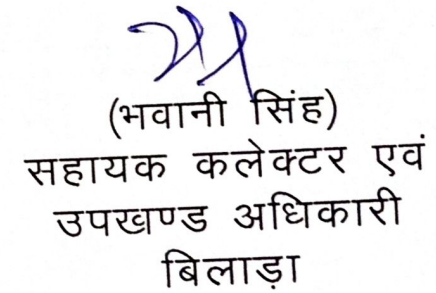 (भवानी सिंह)
सहायक कलेक्टर एवं
उपखण्ड अधिकारी
बिलाड़ा